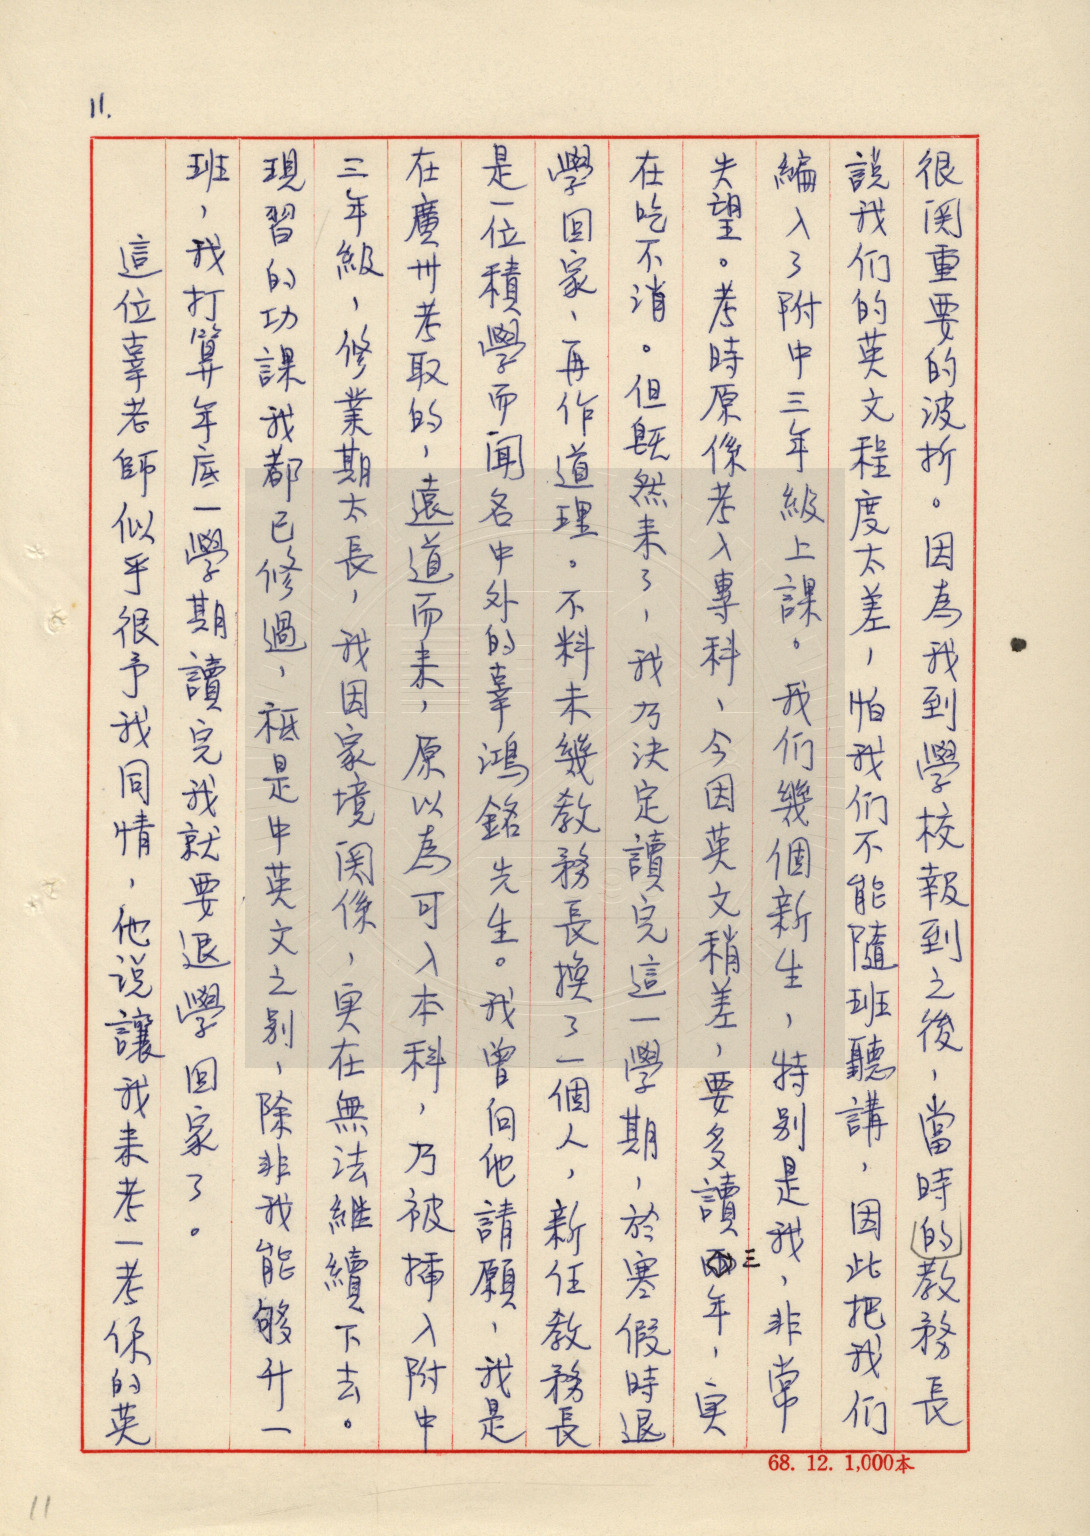 11.
很関重要的波折。因為我到學校報到之後，當時的教務長
說我们的英文程度太差，怕我们不能隨班聽講，因此把我们
編入了附中三年級上課。我们幾個新生，特别是我，非常
失望。考時原係考入專科，今因英文稍差，要多讀三年，実
在吃不消。但既然来了，我乃決定讀完這一學期，於寒假時退
學回家，再作道理。不料未幾教務長換了一個人，新任教務長
是一位積學而聞名中外的辜鴻銘先生。我曾向他請願，我是
在廣州考取的，遠道而来，原以為可入本科，乃被插入附中
三年級，修業期太長，我因家境関係，実在無法継續下去。
現習的功課我都已修過，祗是中英文之别，除非我能够升一
班，我打算年底一學期讀完我就要退學回家了。
這位辜老師似乎很予我同情，他説讓我来考一考你的英
68. 12. 1,000本
11